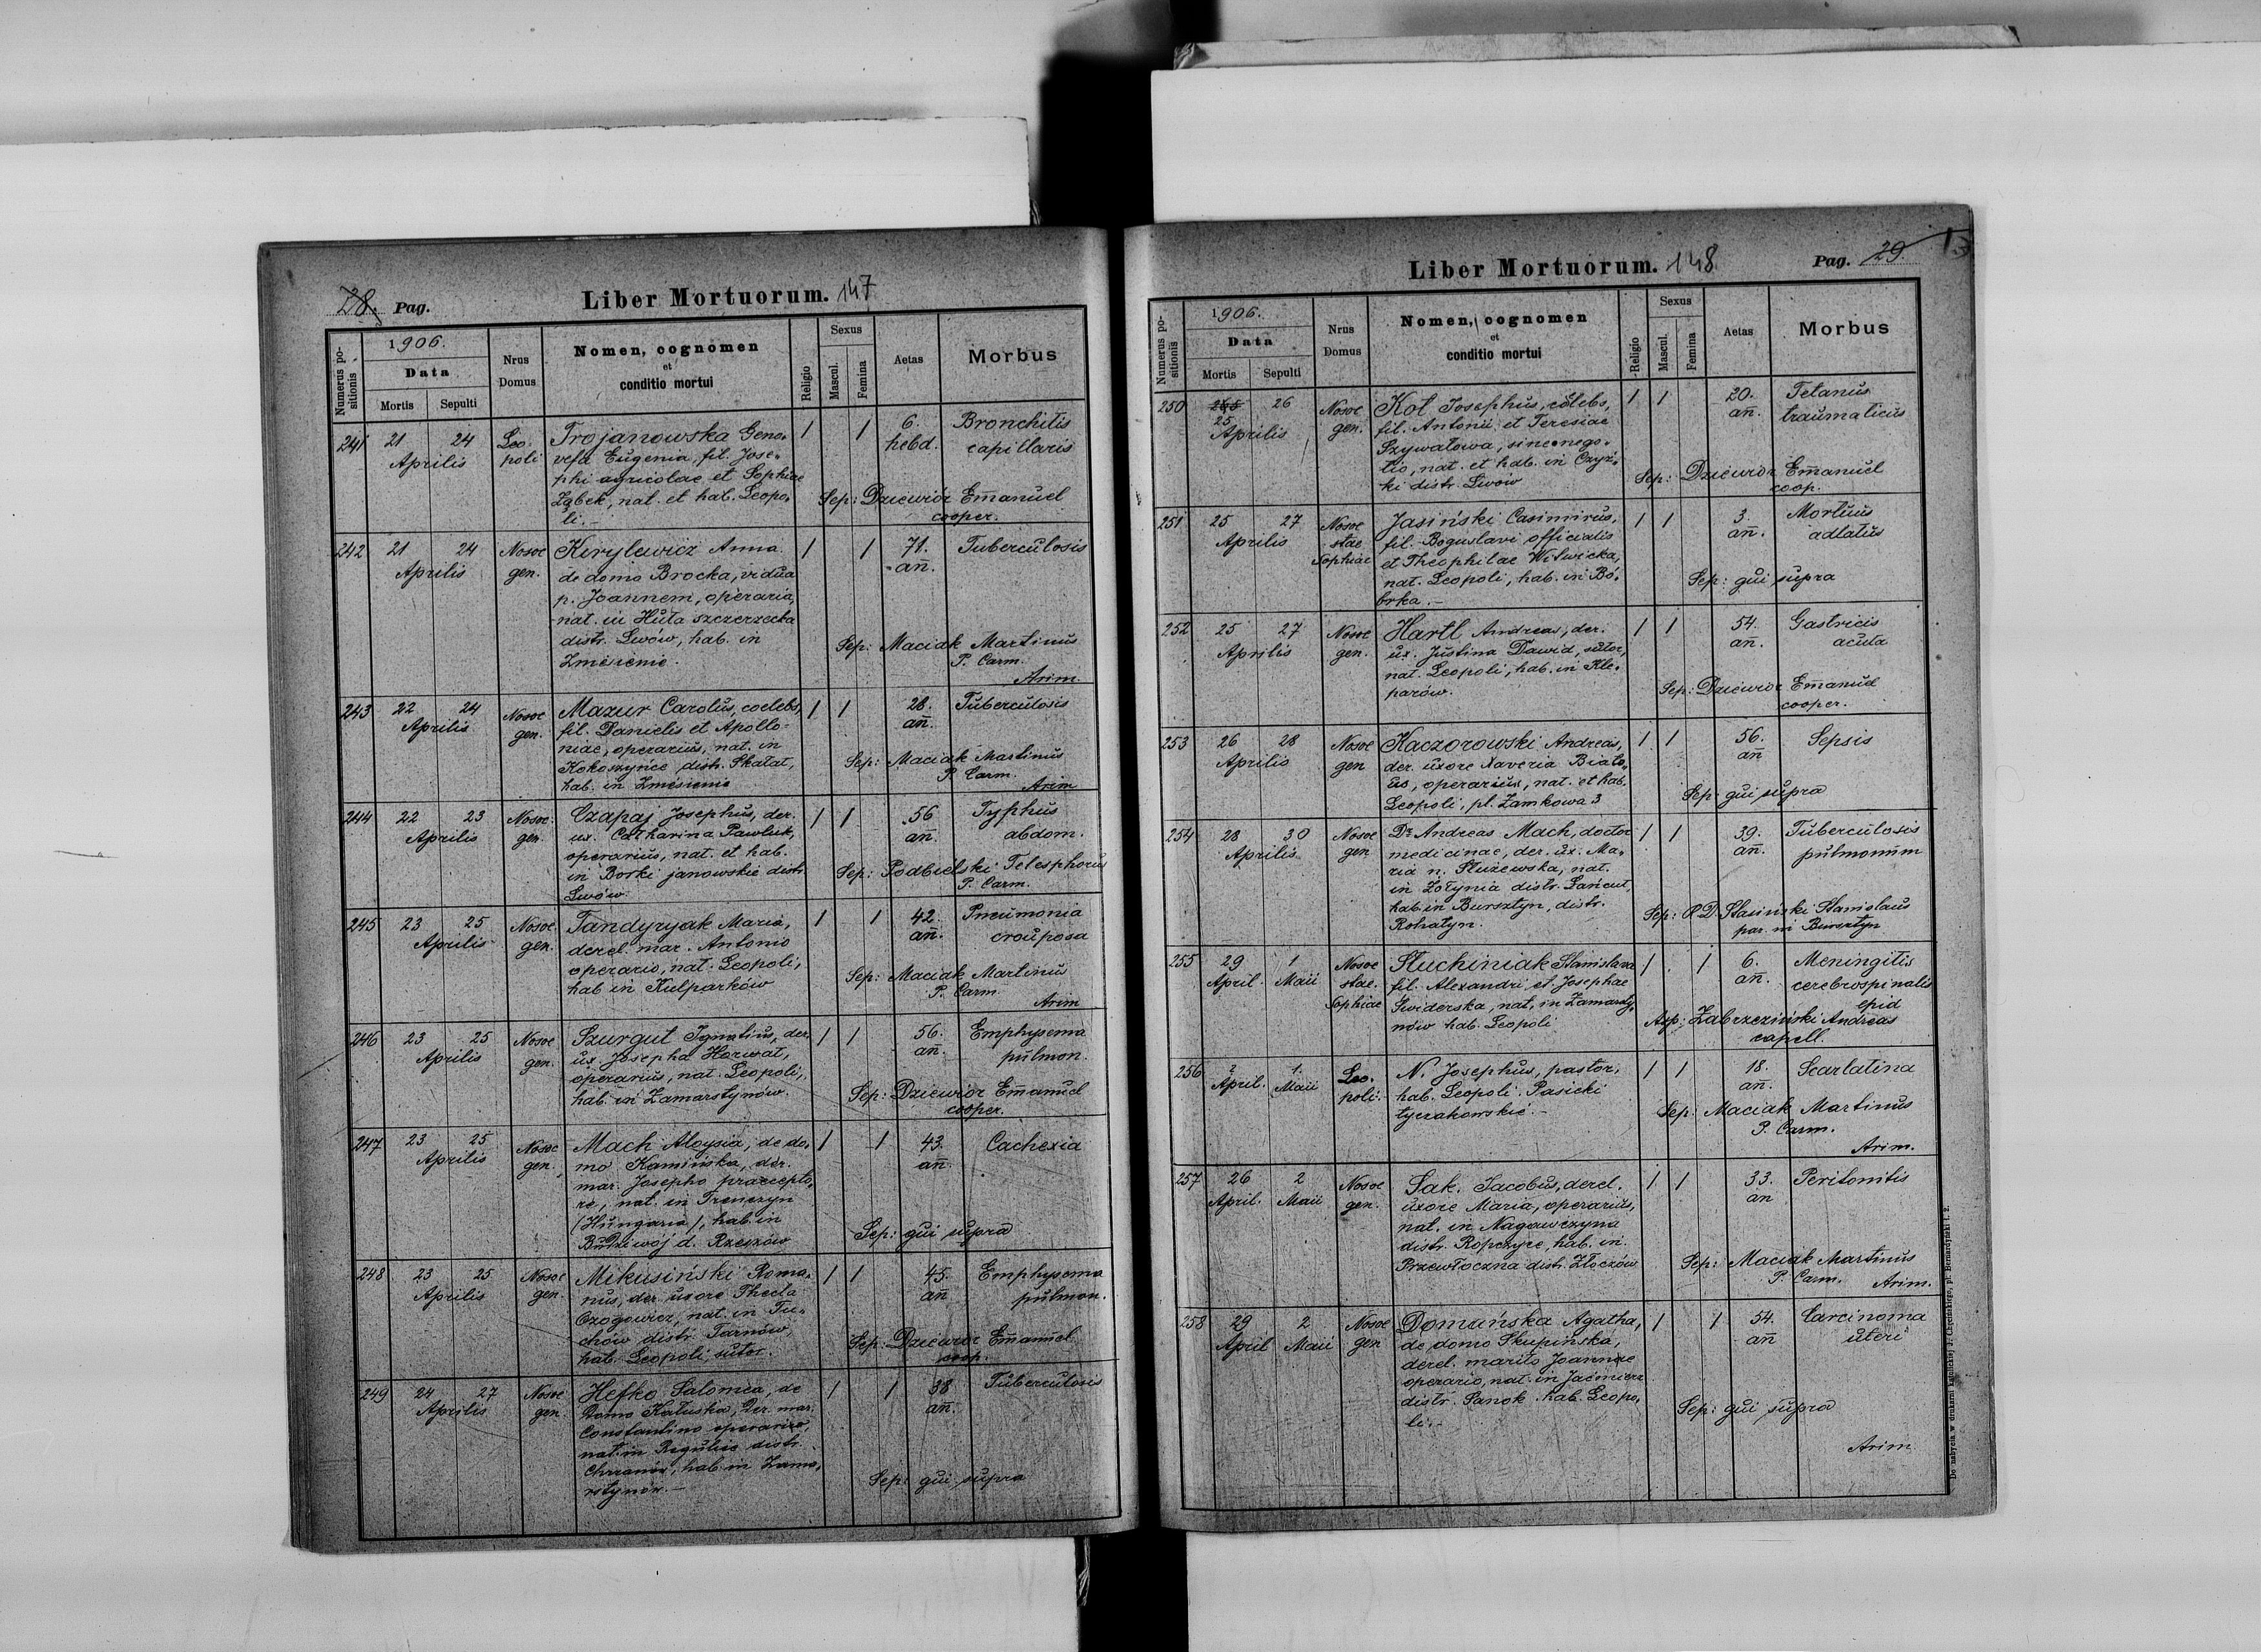 28. Pag.
Liber Mortuorum. 147
Numerus positionis
1906.
Data
Mortis
Sepulti
Nrus Domus
Nomen, cognomen
et
conditio mortui
Religio
Sexus
Mascul.
Femina
Aetas
Morbus
241 21 24 Aprilis Leopoli
Trojanowska Geno-
vefa Eugenia, fil. Jose-
phi agricolae et Sophiae
Ząbek, nat. et hab. Leopo-
li.-
1 1 6. hebd.
Bronchitis
capillaris
Sep: Dziewiór Emanuel
cooper.
242 21 24 Aprilis Nosoc gen.
Kerylewicz Anna
de domo Brocka, vidua
p. Joannem, operaria,
nat. in Huta szczerzecka
distr. Lwów, hab. in
Zniesienie.
1 1 71. an̄.
Tuberculosis
Sep: Maciak Martinus
P. Carm.
Arim.
243 22 24 Aprilis Nosoc gen.
Mazur Carolus, coelebs,
fil. Danielis et Apollo-
niae, operarius, nat. in
Kokoszyńce distr. Skałat,
hab. in Zniesienie
1 1 28. an̄.
Tuberculosis
Sep: Maciak Martinus
P. Carm.
Arim
244 22 23 Aprilis Nosoc. gen.
Czapaj Josephus, der.
ux. Catharina Pawluk,
operarius, nat. et hab.
in Borki janowskie distr.
Lwów
1 1 56 an̄.
Typhus
abdom.
Sep: Podbielski Telesphorus
P. Carm.
245 23 25 Aprilis Nosoc. gen.
Tandyryak Maria,
derel. mar. Antonio
operario, nat. Leopoli,
hab in Kulparków
1 1 42. an̄.
Pneumonia
crouposa
Sep: Maciak Martinus
P. Carm.
Arim
246 23 25 Aprilis Nosoc gen.
Szurgut Ignatius, der.
ux. Josepha Horwat,
operarius, nat. Leopoli,
hab. in Zamarstynów.
1 1 56. an̄.
Emphysema
pulmon.
Sep: Dziewiór Emanuel
cooper.
247 23 25 Aprilis Nosoc gen.
Mach Aloysia, de do-
mo Kamińska, der.
mar. Josepho praecepto-
re, nat. in Trenczyn
(Hungaria), hab. in
Budziwój d. Rzeszów
1 1 43. an̄.
Cachexia
Sep: qui supra
248 23 25 Aprilis Nosoc gen.
Mikusiński Roma-
nus, der. uxore Thecla
Czogowicz, nat. in Tu-
chów distr. Tarnów,
hab. Leopoli, sutor.
1 1 45. an̄
Emphysema
pulmon.
Sep: Dziewiór Emanuel
coop.
249 24 27 Aprilis Nosoc gen.
Hefko Salomea, de
domo Kałuska, der. mar.
Constantino operario,
nat. in Regulice distr.
Chrzanów, hab. in Zama-
rstynów.-
1 1 38 an̄.
Tuberculosis
Sep: qui supra
Liber Mortuorum. 148
Pag. 29.
Numerus positionis
1906.
Data
Mortis
Sepulti
Nrus Domus
Nomen, cognomen
et
conditio mortui
Religio
Sexus
Mascul.
Femina
Aetas
Morbus
250 25 26 Aprilis Nosoc gen.
Kot Josephus, cölebs,
fil. Antonii et Teresiae
Szywałowa, sine nego-
tio, nat. et hab. in Czyż-
ki distr. Lwów
1 1 20. an.
Tetanus
traumaticus
Sep: Dziewiór Emanuel
coop.
251 25 27 Aprilis Nosoc stae Sophiae
Jasiński Casimirus,
fil. Boguslavi officialis
et Theophilae Witwicka,
nat. Leopoli, hab. in Bó-
brka.-
1 1 3. an̄.
Mortuus
adlatus
Sep: qui supra
252 25 27 Aprilis Nosoc gen.
Hartl Andreas, der.
ux. Justina Dawid, sutor,
nat. Leopoli, hab. in Kle-
parów.
1 1 54. an̄.
Gastricis
acuta
Sep: Dziewiór Emanuel
cooper.
253 26 28 Aprilis Nosoc gen
Kaczorowski Andreas,
der. uxore Xaveria Biało-
us, operarius, nat. et hab.
Leopoli, pl. Zamkowa 3
1 1 56. an̄
Sepsis
Sep: qui supra
254 28 30 Aprilis Nosoc gen
Dr Andreas Mach, doctor
medicinae, der. ux. Ma-
ria n. Służewska, nat.
in Żołynia distr. Łańcut,
hab in Bursztyn, distr.
Rohatyn.
1 1 39. an̄.
Tuberculosis
pulmonum
Sep: R.D. Stasiński Stanislaus
par. in Bursztyn
255 29 April. 1 Maii Nosoc stae. Sophiae
Sluchiniak Stanislava
fil. Alexandri et Josephae
Swiderska, nat. in Zamarsty-
nów hab. Leopoli
1 1 6. an̄.
Meningitis
cerebrospinalis
epid
Sep: Zabrzeziński Andreas
capell.
256 ? April. 1. Maii Leopoli.
N. Josephus, pastor,
hab. Leopoli. Pasieki
łyczakowskie.-
1 1 18. an̄.
Scarlatina
Sep: Maciak Martinus
P. Carm.
Arim.
257 26 April. 2 Maii Nosoc gen.
Sak. Jacobus, derel.
uxore Maria, operarius,
nat. in Nagawczyna
distr. Ropczyce, hab. in
Przewłoczna distr. Złoczów
1 1 33. an
Peritonitis
Sep: Maciak Martinus
P. Carm. Arim.
258 29 April 2 Maii Nosoc gen
Domańska Agatha,
de domo Skupińska,
derel. marito Joanne
operario, nat. in Jaćmierz
distr. Sanok. hab. Leopo-
li.-
1 1 54. an̄
Carcinoma
uteri
Sep: qui supra
Arim
Do nabycia w drukarni katolickiej J. Chęcińskiego, pl. Bernardyński l. 2.